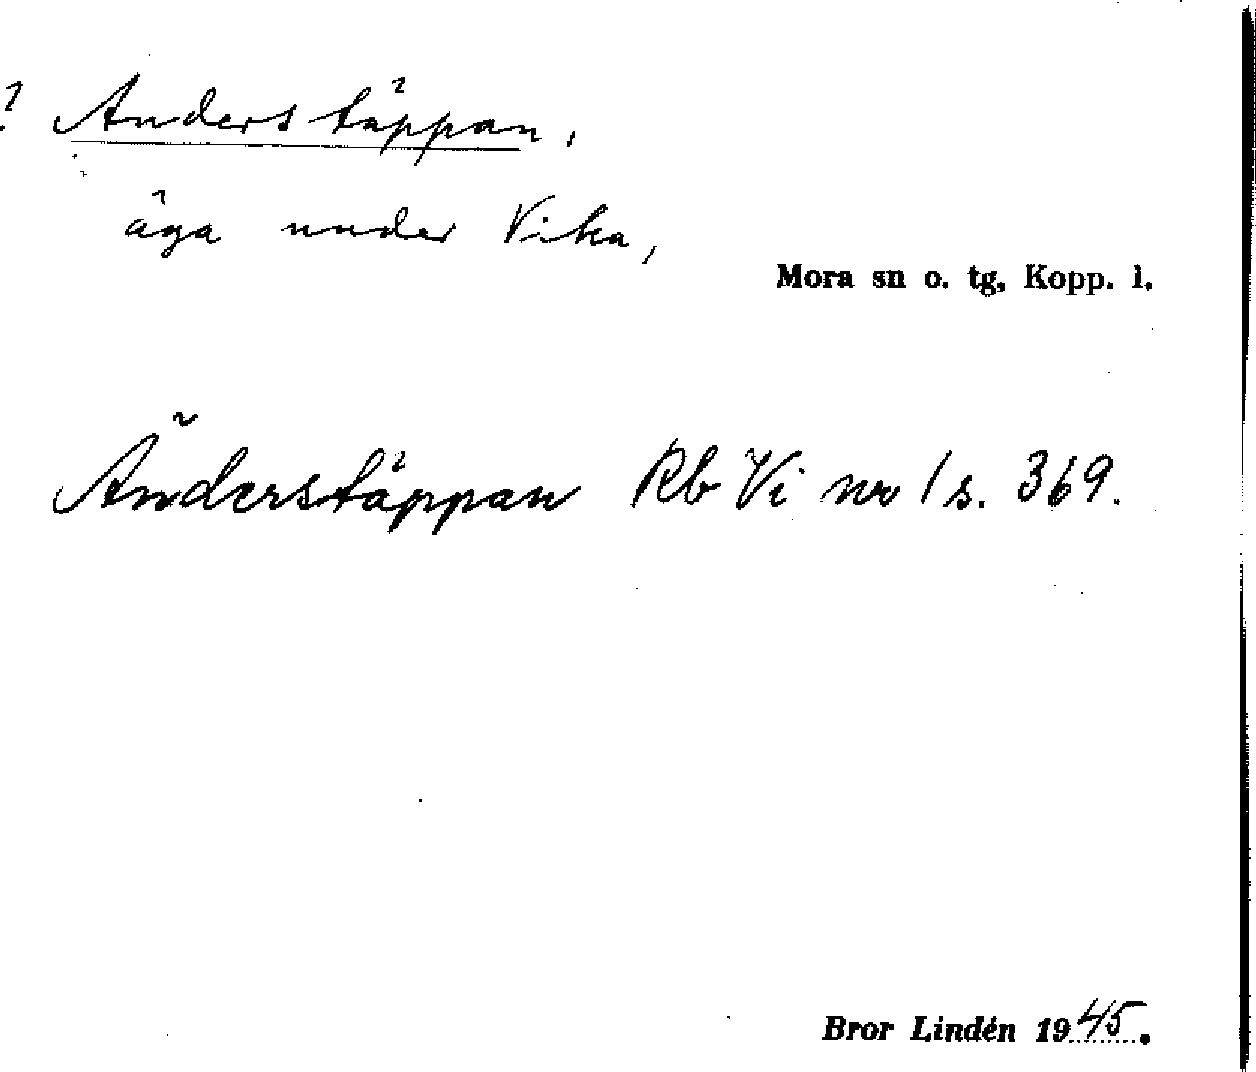 ? Anders täppan,
äga under Vika,
Mora sn o. tg, Kopp. l.
Änderstäppan Rb Vi nr 1 s. 369.
Bror Lindén 1945.